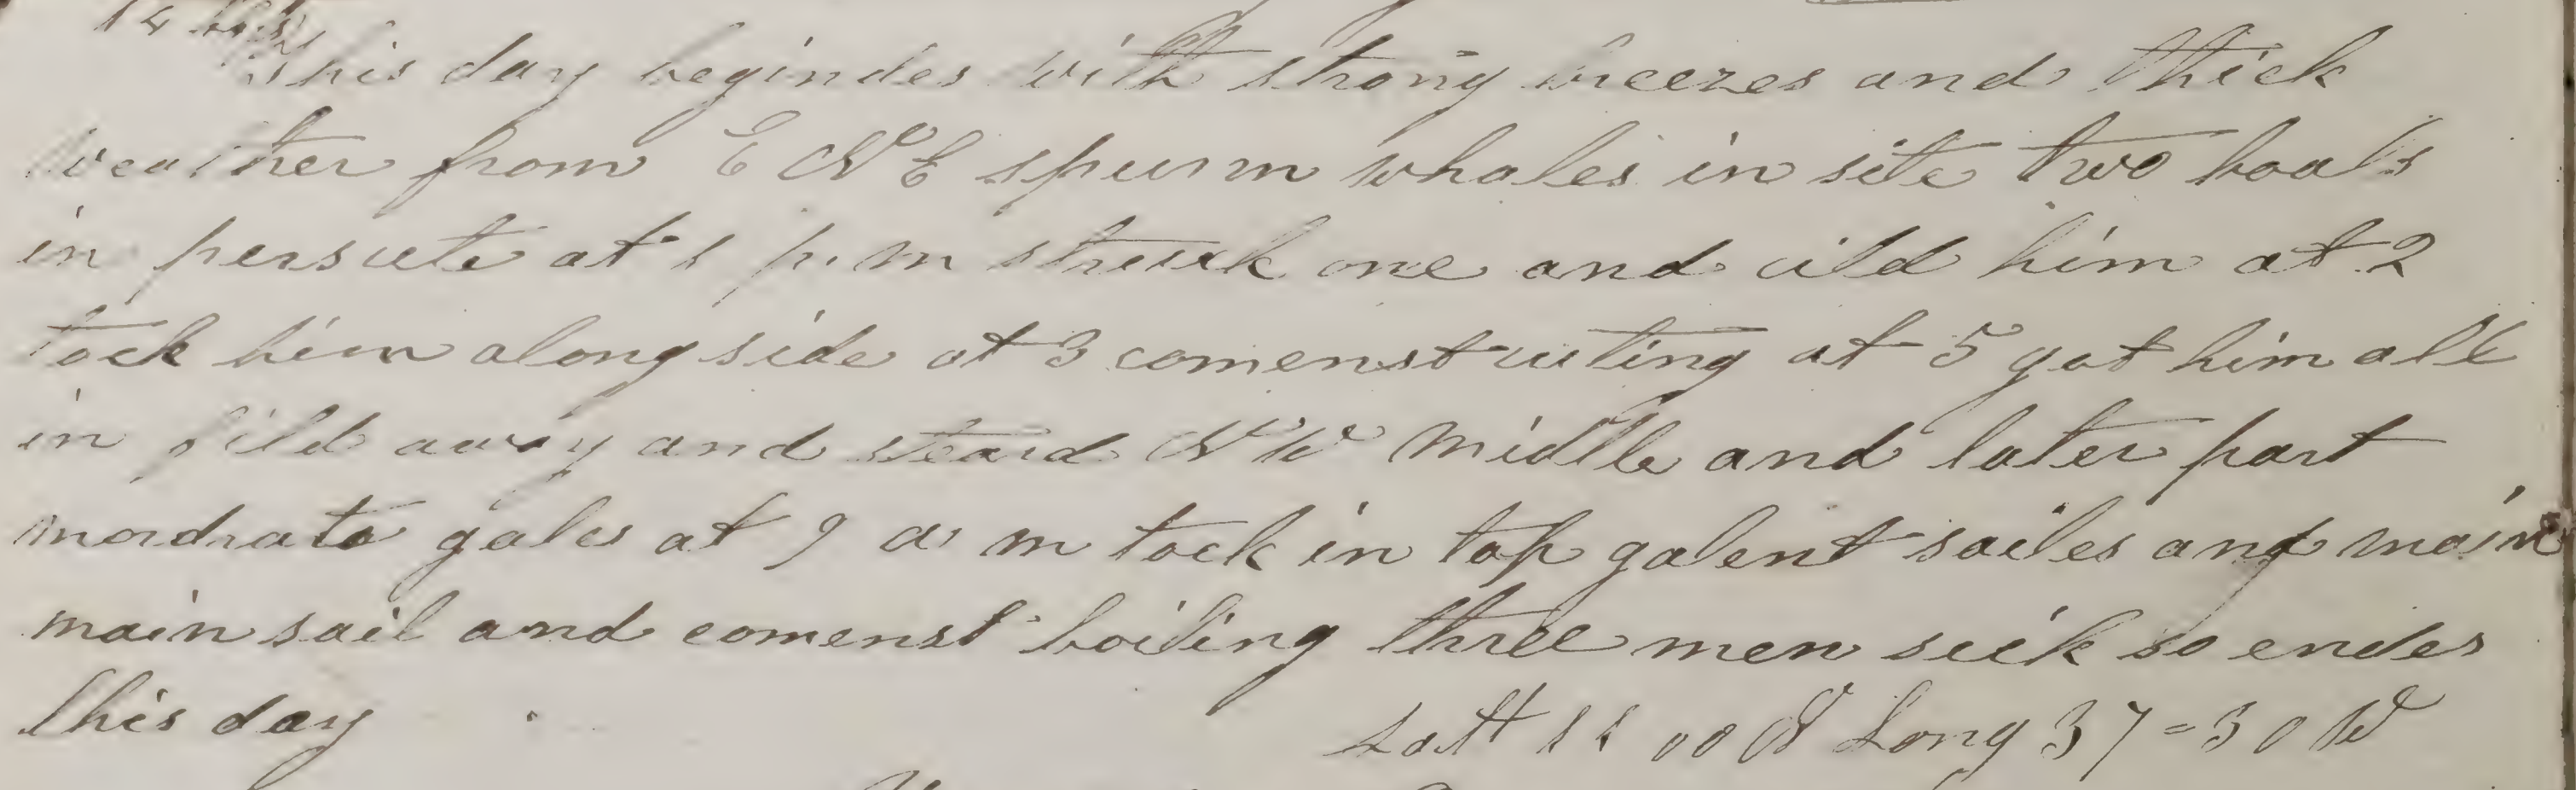 This day begindes with strong breezes and thick
weather from E N E spurm whales in site two boats
in persute at 1 p. m struck one and cild him at 2
tock him along side at 3 comenst cuting at 5 got him all
in fild away and steard N W middle and later part
mordrate gales at 9 a m tock in top galent sailes and main
main sail and comenst boiling three men sick so endes
this day
Latt 11 00 N Long 37=30 W